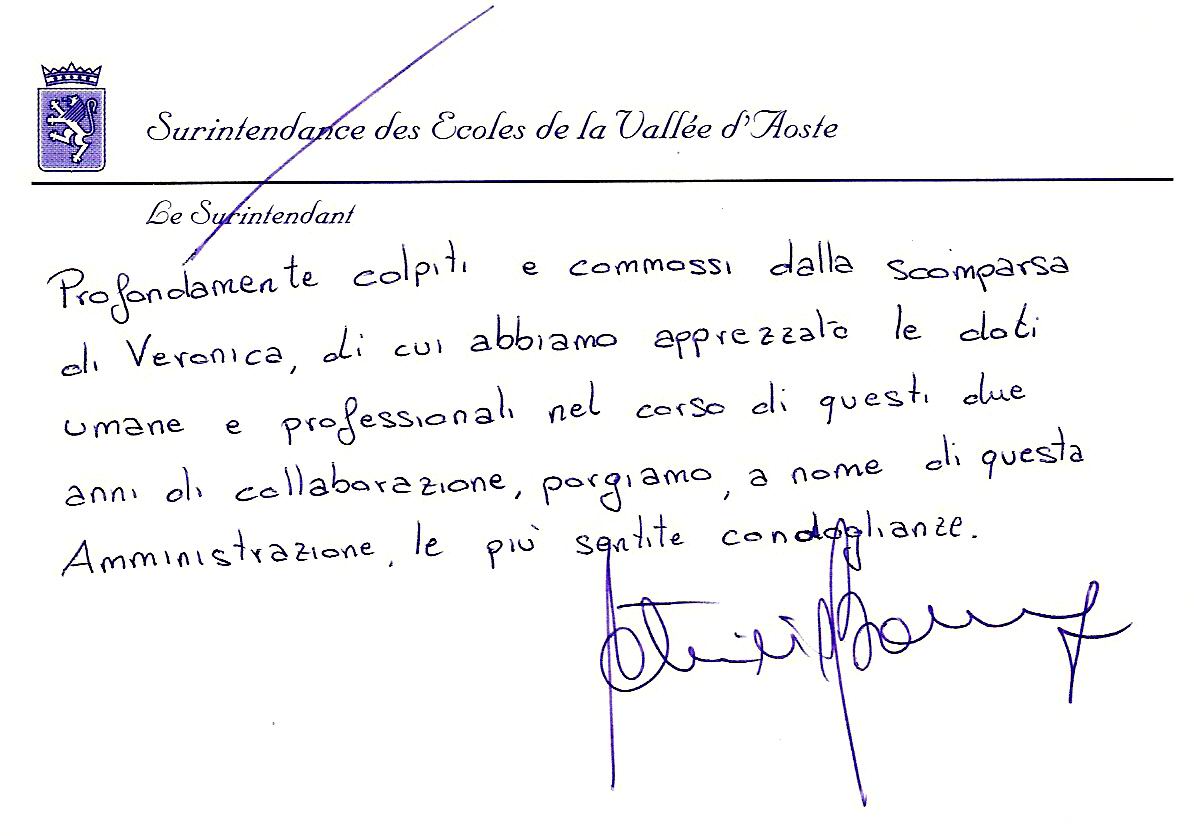 Surintendance des Ecoles de la Vallée d'Aoste
Le Surintendant
Profondamente colpiti e commossi dalla scomparsa
di Veronica, di cui abbiamo apprezzato le doti
umane e professionali nel corso di questi due
anni di collaborazione, porgiamo, a nome di questa
Amministrazione, le più sentite condoglianze.